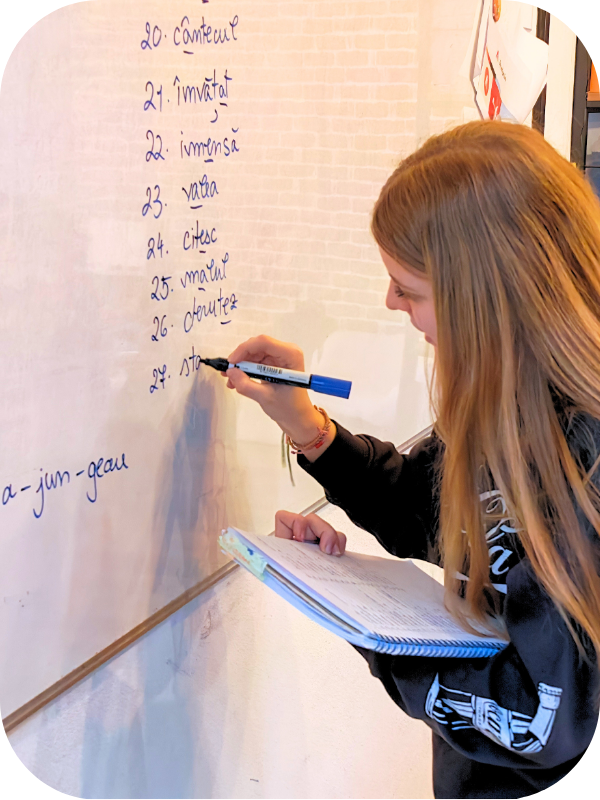 20. cântecul
21. învățat
22. imensă
23. valea
24. citesc
25. malul
26. derutez
27. sta
a-jun-geau